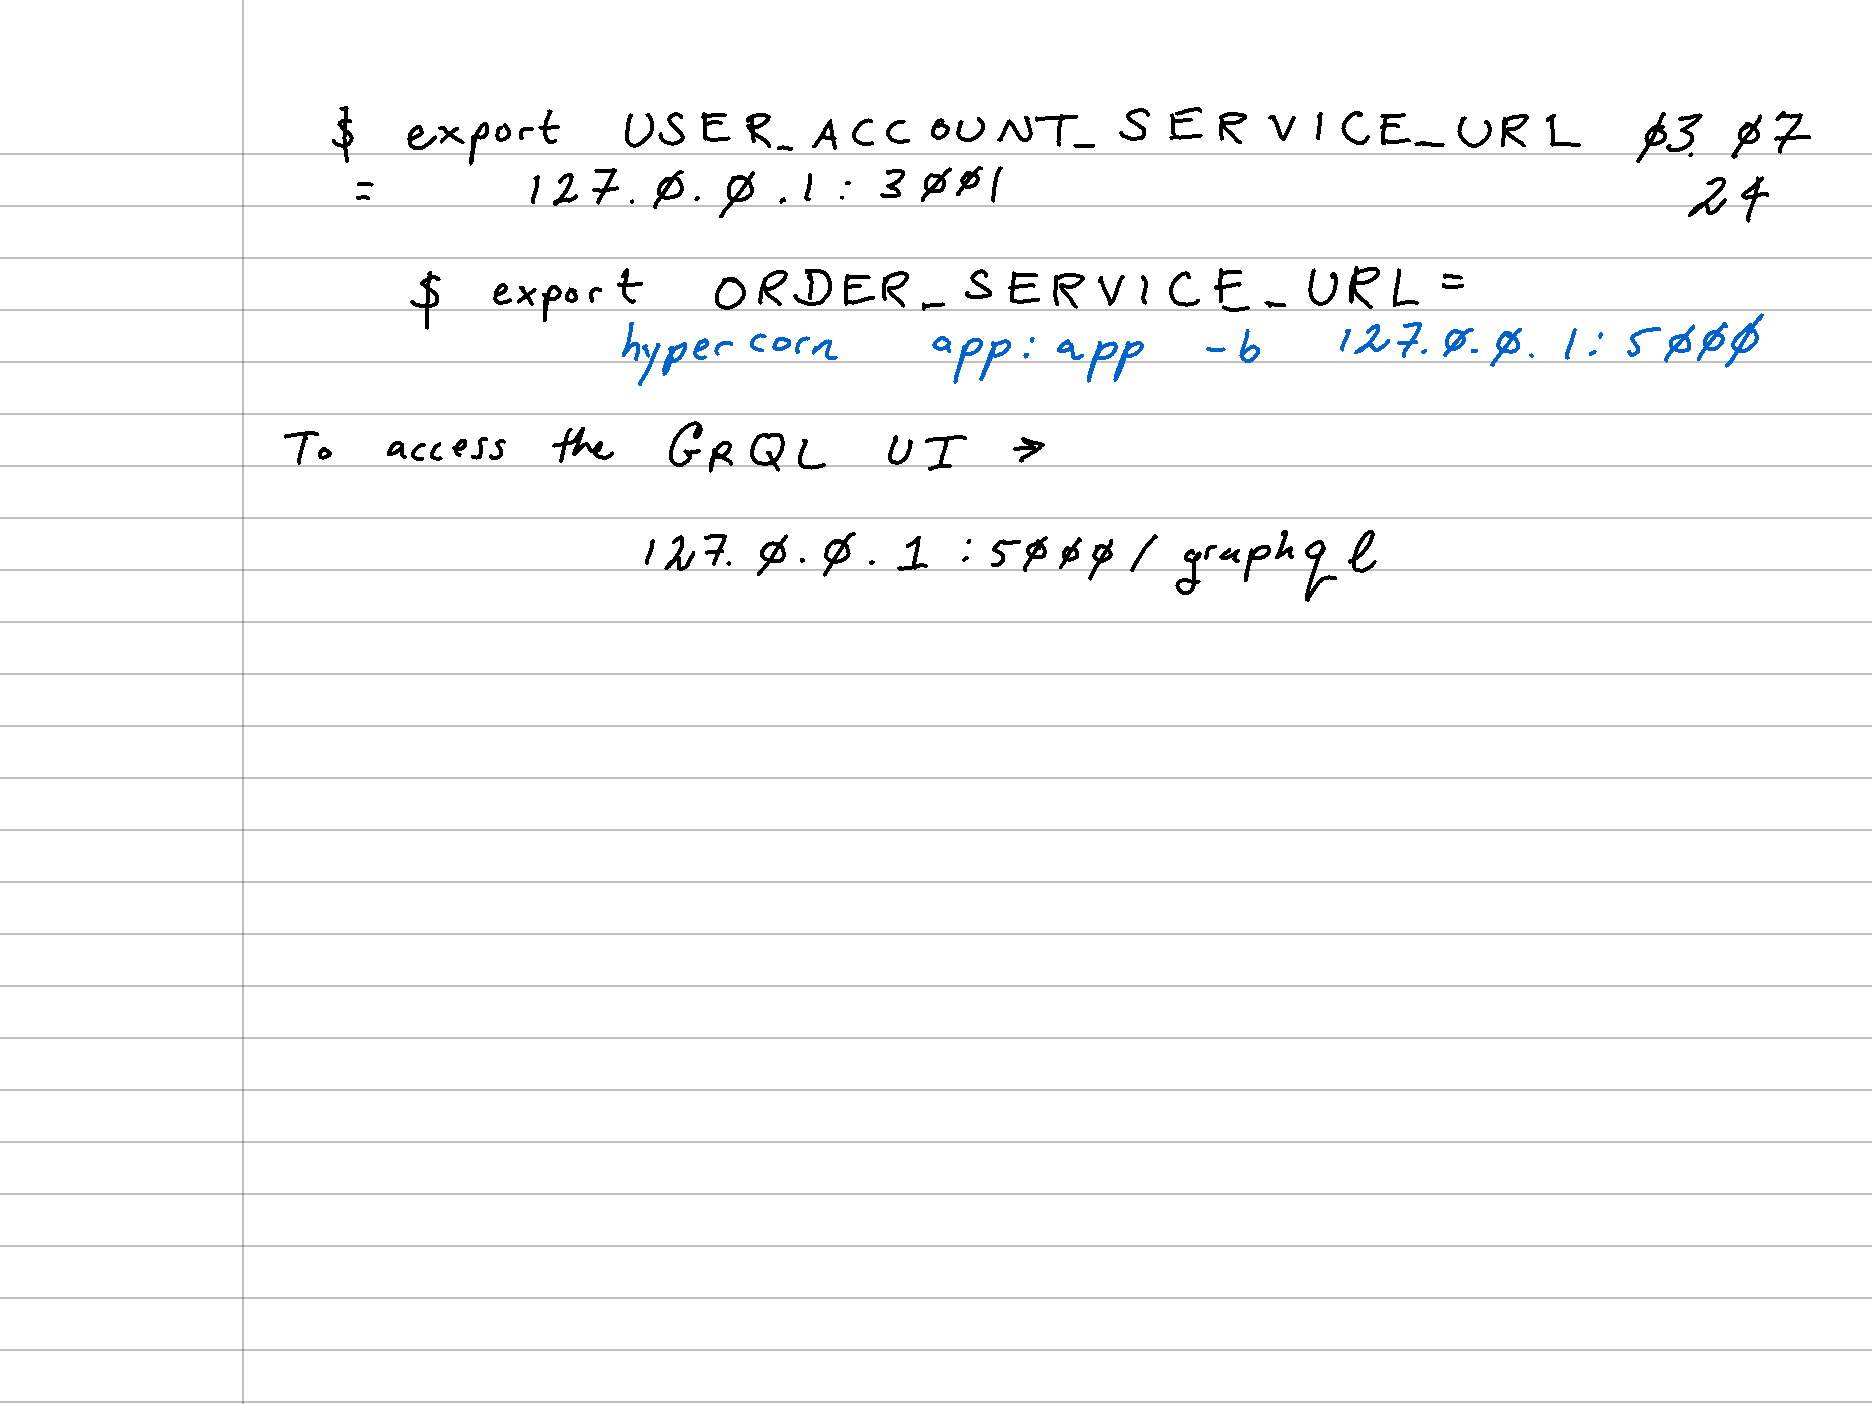 $ export USER_ACCOUNT_SERVICE_URL 03.07
= 127.0.0.1:3001 24
$ export ORDER_SERVICE_URL =
hypercorn app:app -b 127.0.0.1:5000
To access the GRQL UI →
127.0.0.1:5000/graphql